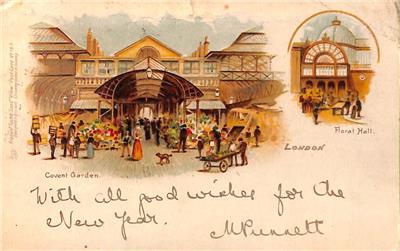 Covent Garden.
LONDON
Floral Hall.
With all good wishes for the
New Year.
M Punnett